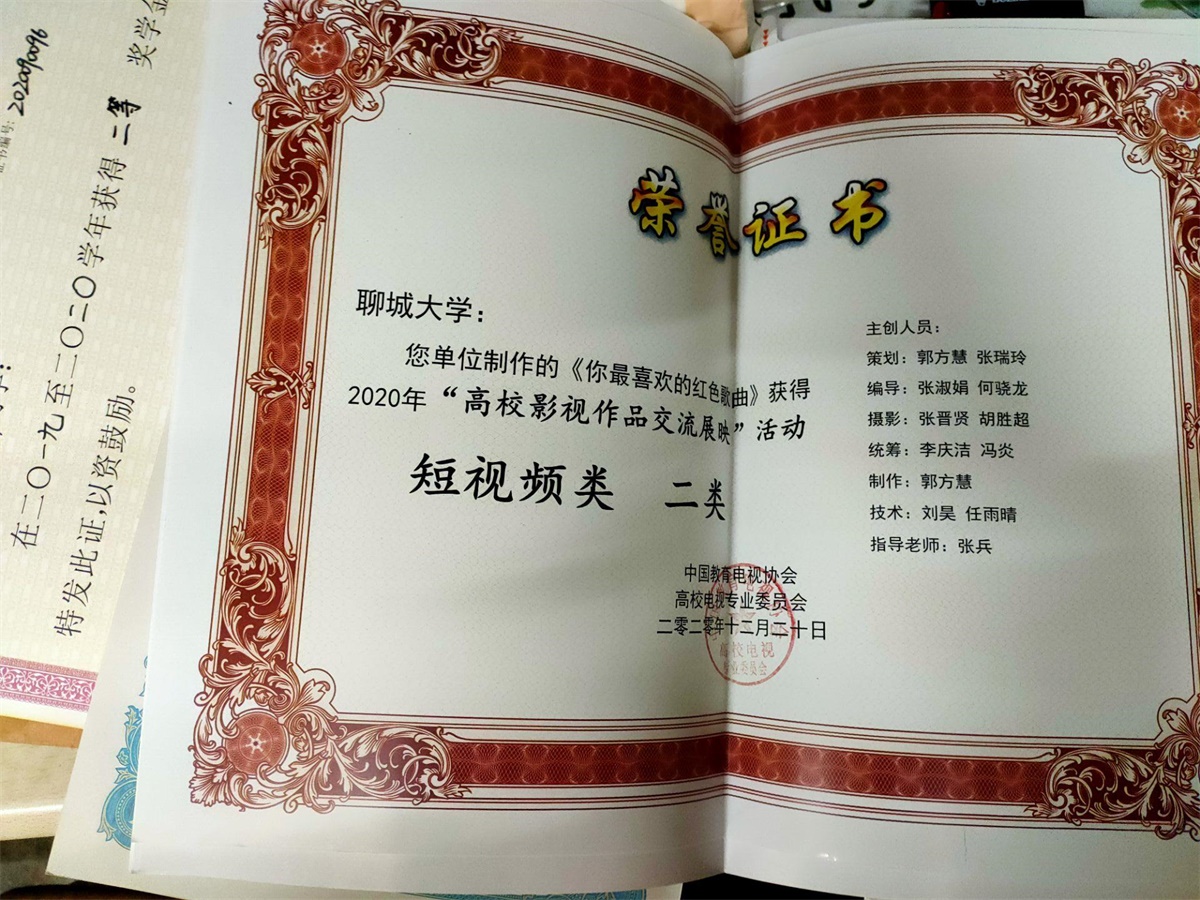 证书编号: 202090096
在二〇一九至二〇二〇学年获得 二等 奖学金
特发此证,以资鼓励。
荣誉证书
聊城大学:
您单位制作的《你最喜欢的红色歌曲》获得
2020年“高校影视作品交流展映”活动
短视频类 二类
中国教育电视协会
高校电视专业委员会
二零二零年十二月二十日
高校电视
专业委员会
主创人员:
策划: 郭方慧 张瑞玲
编导: 张淑娟 何骁龙
摄影: 张晋贤 胡胜超
统筹: 李庆洁 冯炎
制作: 郭方慧
技术: 刘昊 任雨晴
指导老师: 张兵